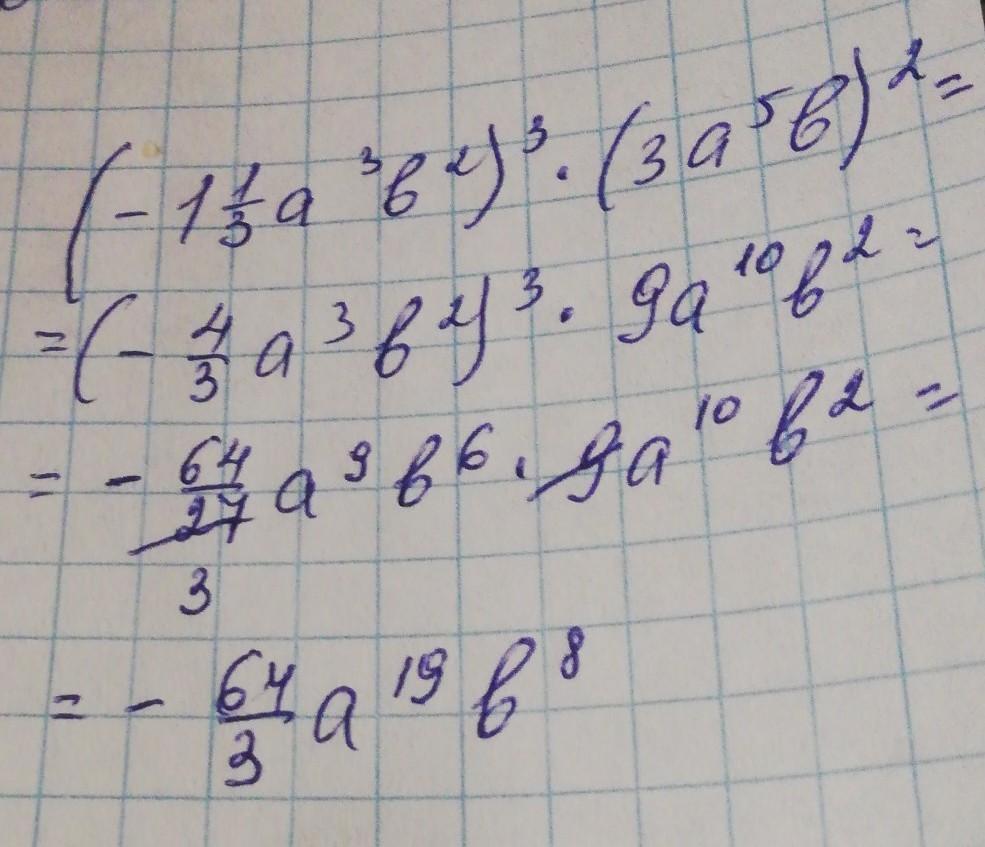 (- 1 1/3 a³в²)³ · (3a⁵в)² =
= (- 4/3 a³в²)³ · 9a¹⁰в² =
= - 64/27 a⁹в⁶ · 9a¹⁰в² =
3
= - 64/3 a¹⁹в⁸